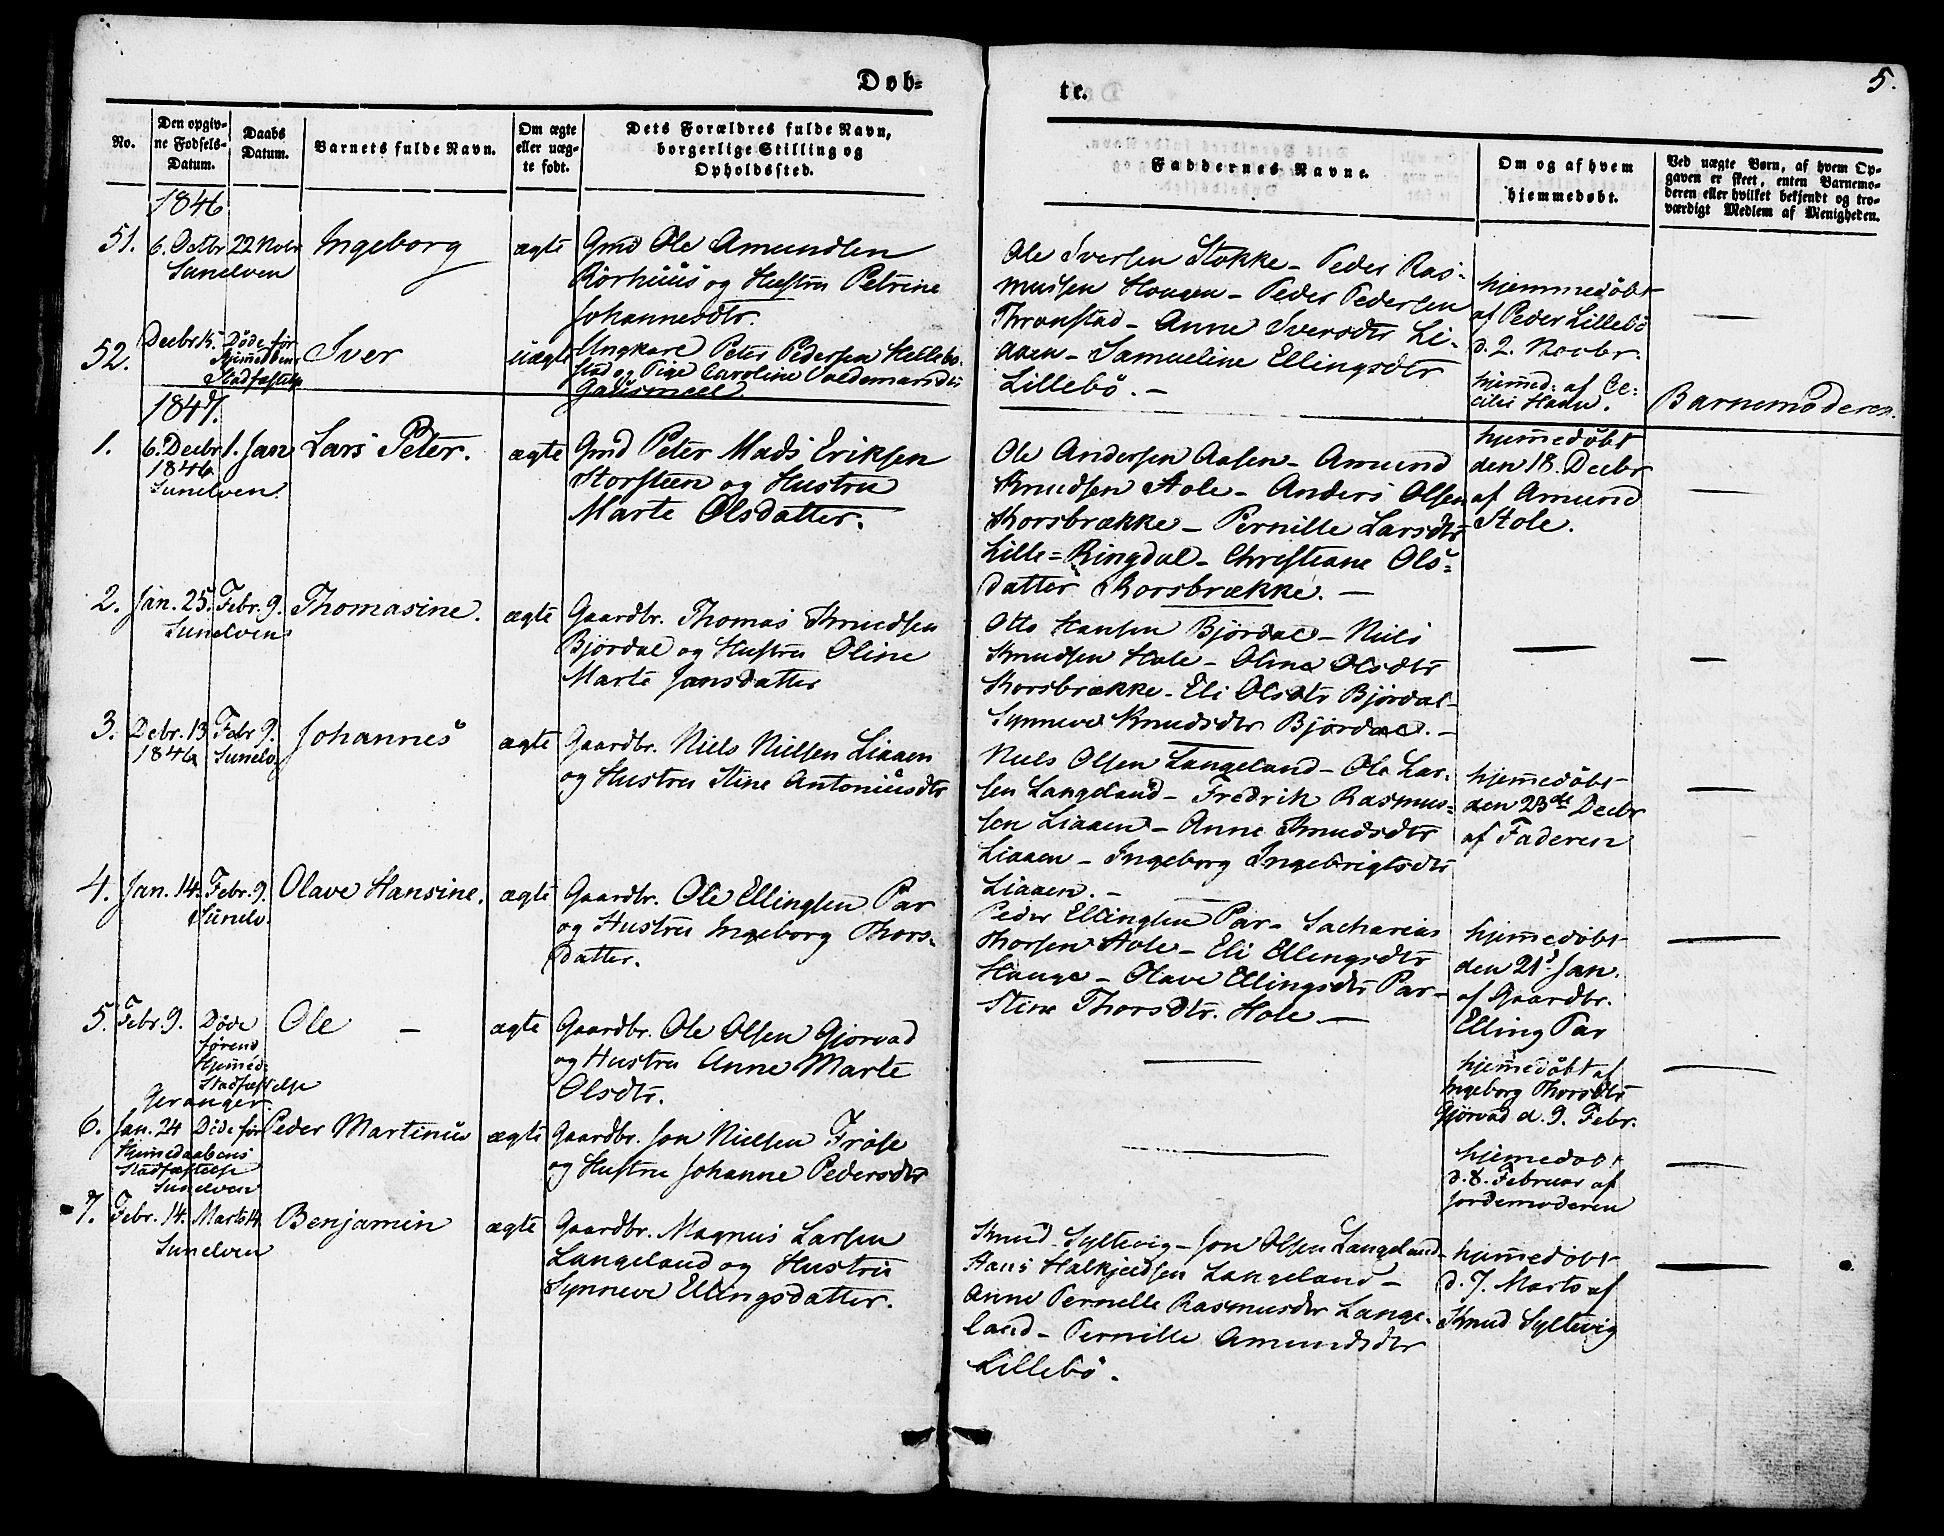 Døb-
te.
5.
No.
Den opgiv-
ne Fødsels-
Datum.
Daabs
Datum.
Barnets fulde Navn.
Om ægte
eller uæg-
te født.
Dets Forældres fulde Navn,
borgerlige Stilling og
Opholdssted.
Faddernes Navne.
Om og af hvem
hjemmedøbt.
Ved uægte Børn, af hvem Op-
gaven er skeet, enten Barnemo-
deren eller hvilket bekjendt og tro-
værdigt Medlem af Menigheden.
1846
51.
6. Octbr
22 Novbr
Sunelven
Ingeborg
ægte
Gmd Ole Amundsen
Rørhuus og Hustru Petrine
Johannesdtr.
Ole Iversen Stokke - Peder Ras-
mussen Hougen - Peder Pedersen
Thronstad - Anne Iversdtr Li-
aaen - Samueline Ellingsdtr
Lillebø. -
hjemmedøbt
af Peder Lillebø
d. 2. Novbr.
—
52.
Decbr 15.
Døde før
Hjemmedaabens
Stadfæstelse
Iver
uægte
Ungkarl Peter Pedersen Hellebo-
stad og Pige Caroline Valdemarsdtr
hjemmed: af Ce-
cilie
Barnemoderen.
1847.
1.
6. Decbr
1846
Sunelven.
1. Jan
Lars Peter.
ægte
Gmd Peter Mads Eriksen
Korsteen og Hustru
Marte Olsdatter.
Ole Andersen Aasen - Amund
Knudsen Hole - Anders Olsen
Korsbrække - Pernille Larsdtr
Lille-Ringdal - Christiane Ols-
datter Korsbrække. —
hjemmedøbt
den 18. Decbr
af Amund
Hole.
—
2.
Jan. 25.
Febr. 9.
Sunelven
Thomasine.
ægte
Gaardbr. Thomas Knudsen
Bjørdal og Hustru Oline
Marte Jansdatter
Otto Hansen Bjørdal - Niels
Knudsen Hole - Oline Olsdtr
Korsbrække - Eli Olsdtr Bjørdal -
Synneve Knudsdtr Bjørdal. -
—
—
3.
Debr. 13
1846
Febr 9.
Sunelv.
Johannes
ægte
Gaardbr. Niels Nielsen Liaaen
og Hustru Stine Antoniusdtr
Niels Olsen Langeland - Ole Lar-
sen Langeland - Fredrik Rasmus-
sen Liaaen - Anne Knudsdtr
Liaaen - Ingeborg Ingebrigtsdtr
Liaaen. -
hjemmedøbt
den 23de Decbr
af Faderen
—
4.
Jan. 14.
Febr. 9.
Sunelv.
Olave Hansine.
ægte
Gaardbr. Ole Ellingsen Par
og Hustru Ingeborg Thors-
datter.
Peder Ellingsen Par - Sacharias
Thorsen Hole - Eli Ellingsdtr
Hauge - Olave Ellingsdtr Par -
Stine Thorsdtr. Hole —
hjemmedøbt
den 21. Jan.
af Gaardbr.
Elling Par
—
5.
Febr 9.
Døde
førend
Hjemmed:
Stadfæstelse
Geranger
Ole -
ægte
Gaardbr. Ole Olsen Gjørvad
og Hustru Anne Marte
Olsdtr.
—
hjemmedøbt af
Ingeborg Thorsdtr
Gjørvad d. 9. Febr.
—
6.
Jan. 24
Døde før
Hjemmedaabens
Stadfæstelse
Sunelven
Peder Martinus
ægte
Gaardbr. Jon Nielsen Frøse
og Hustru Johanne Pedersdtr
—
hjemmedøbt
d. 8. Februar af
Jordemoderen
—
7.
Febr. 14.
Marts 14.
Sunelven
Benjamin
ægte
Gaardbr. Magnus Larsen
Langeland og Hustru
Synneve Ellingsdatter.
Knud Syltevig - Jon Olsen Langeland -
Hans Halkjeldsen Langeland -
Anne Pernelle Rasmusdtr Lange-
land - Pernille Amundsdtr
Lillebø.
hjemmedøbt
d. 7. Marts af
Knud Syltevig
—